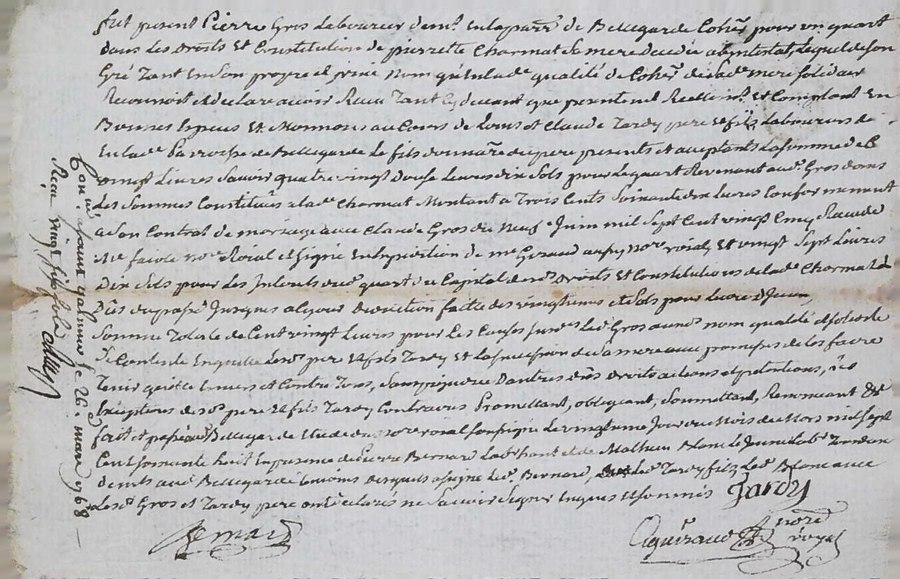 fut present Pierre Gros Laboureur demt. en la parr. de Bellegarde Coher. pour un quart
dans Les Droits et Constitution de pierrette Charmat sa mere decedée abintestat, Lequel de son
Gré Tant en son propre et privé nom qu'en lade. qualité de Coher. de sade. mere solidaire
Reconnoit et declare avoir Recu Tant cy devant que presentement Reellemt. et Comptant En
Bonnes Especes et Monnoies au Cours de Louis et Claude Tardy pere et fils Laboureurs de
En lade. Parroisse de Bellegarde Le fils de son pere presents et acceptants La somme de
vingt Livres Sauoir quatre vingt douse Livres dix Sols pour Le quart Revenant aud. Gros dans
Les Sommes Constituées a lade. Charmat Montant a Trois Cents Soixante dix Livres Conformement
a Son Contrat de mariage avec Claude Gros du Neuf Juin mil Sept Cent vingt Cinq Recu de
Me. nore. Roial et signé en Expedition de me. Geraud aussy nore. roial, et vingt Sept Livres
Dix Sols pour Les Interets dud. quart du Capital desd. Droits et Constitutions de lade. Charmat
Dûs du passé Jusques a ce jour deduction faitte des vingtiemes et Sols pour Livre d'Iceux,
Somme Totale de Cent vingt Livres pour Les Causes susd. Led. Gros aud. nom qualité et solidité
se Contente En quitte Lesd. pere et fils Tardy et La succession de sa mere avec promesse de Les faire
Tenir quitte Envers et Contre Tous, Sans prejudice d'autres dûs droits actions et pretentions, Les
Exceptions desd. pere et fils Tardy Contraires Promettant, obligeant, Soumettant, Renoncant &c
fait et passé aud. Bellegarde Etude du nore. roial soussigné Le vingtieme Jour du Mois de Mars mil sept
Cent soixante huit En presence de Pierre Bernard Labr. et de Mathieu Blanc Le Jeune Labr.
demts. aud. Bellegarde temoins desquels a signé Led. Bernard, Led. Tardy fils Led. Blanc avec
Lesd. Gros et Tardy pere ont déclarés ne Sauoir Signer Enquis et sommés Tardy
Bernard
Geraud nore. royal
Con. a Saint galmier le 26. mars 1768
Recu vingt six sols